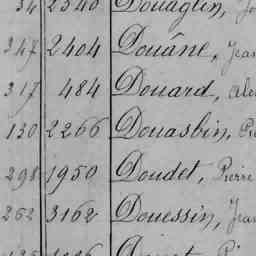 34 2340 Douaglin,
347 2404 Douâne, Jean
317 484 Douard, Ale
130 2266 Douasbin, Pi
298 1950 Doudet, Pierre
262 3162 Douessin, Jean